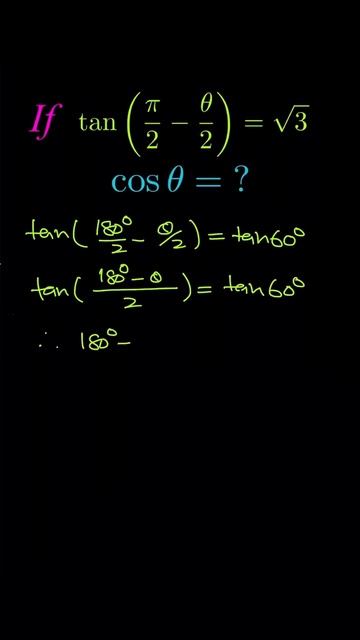 If tan(π/2 − θ/2) = √3
cos θ = ?
tan(180°/2 − θ/2) = tan60°
tan((180° − θ)/2) = tan60°
∴ 180° −